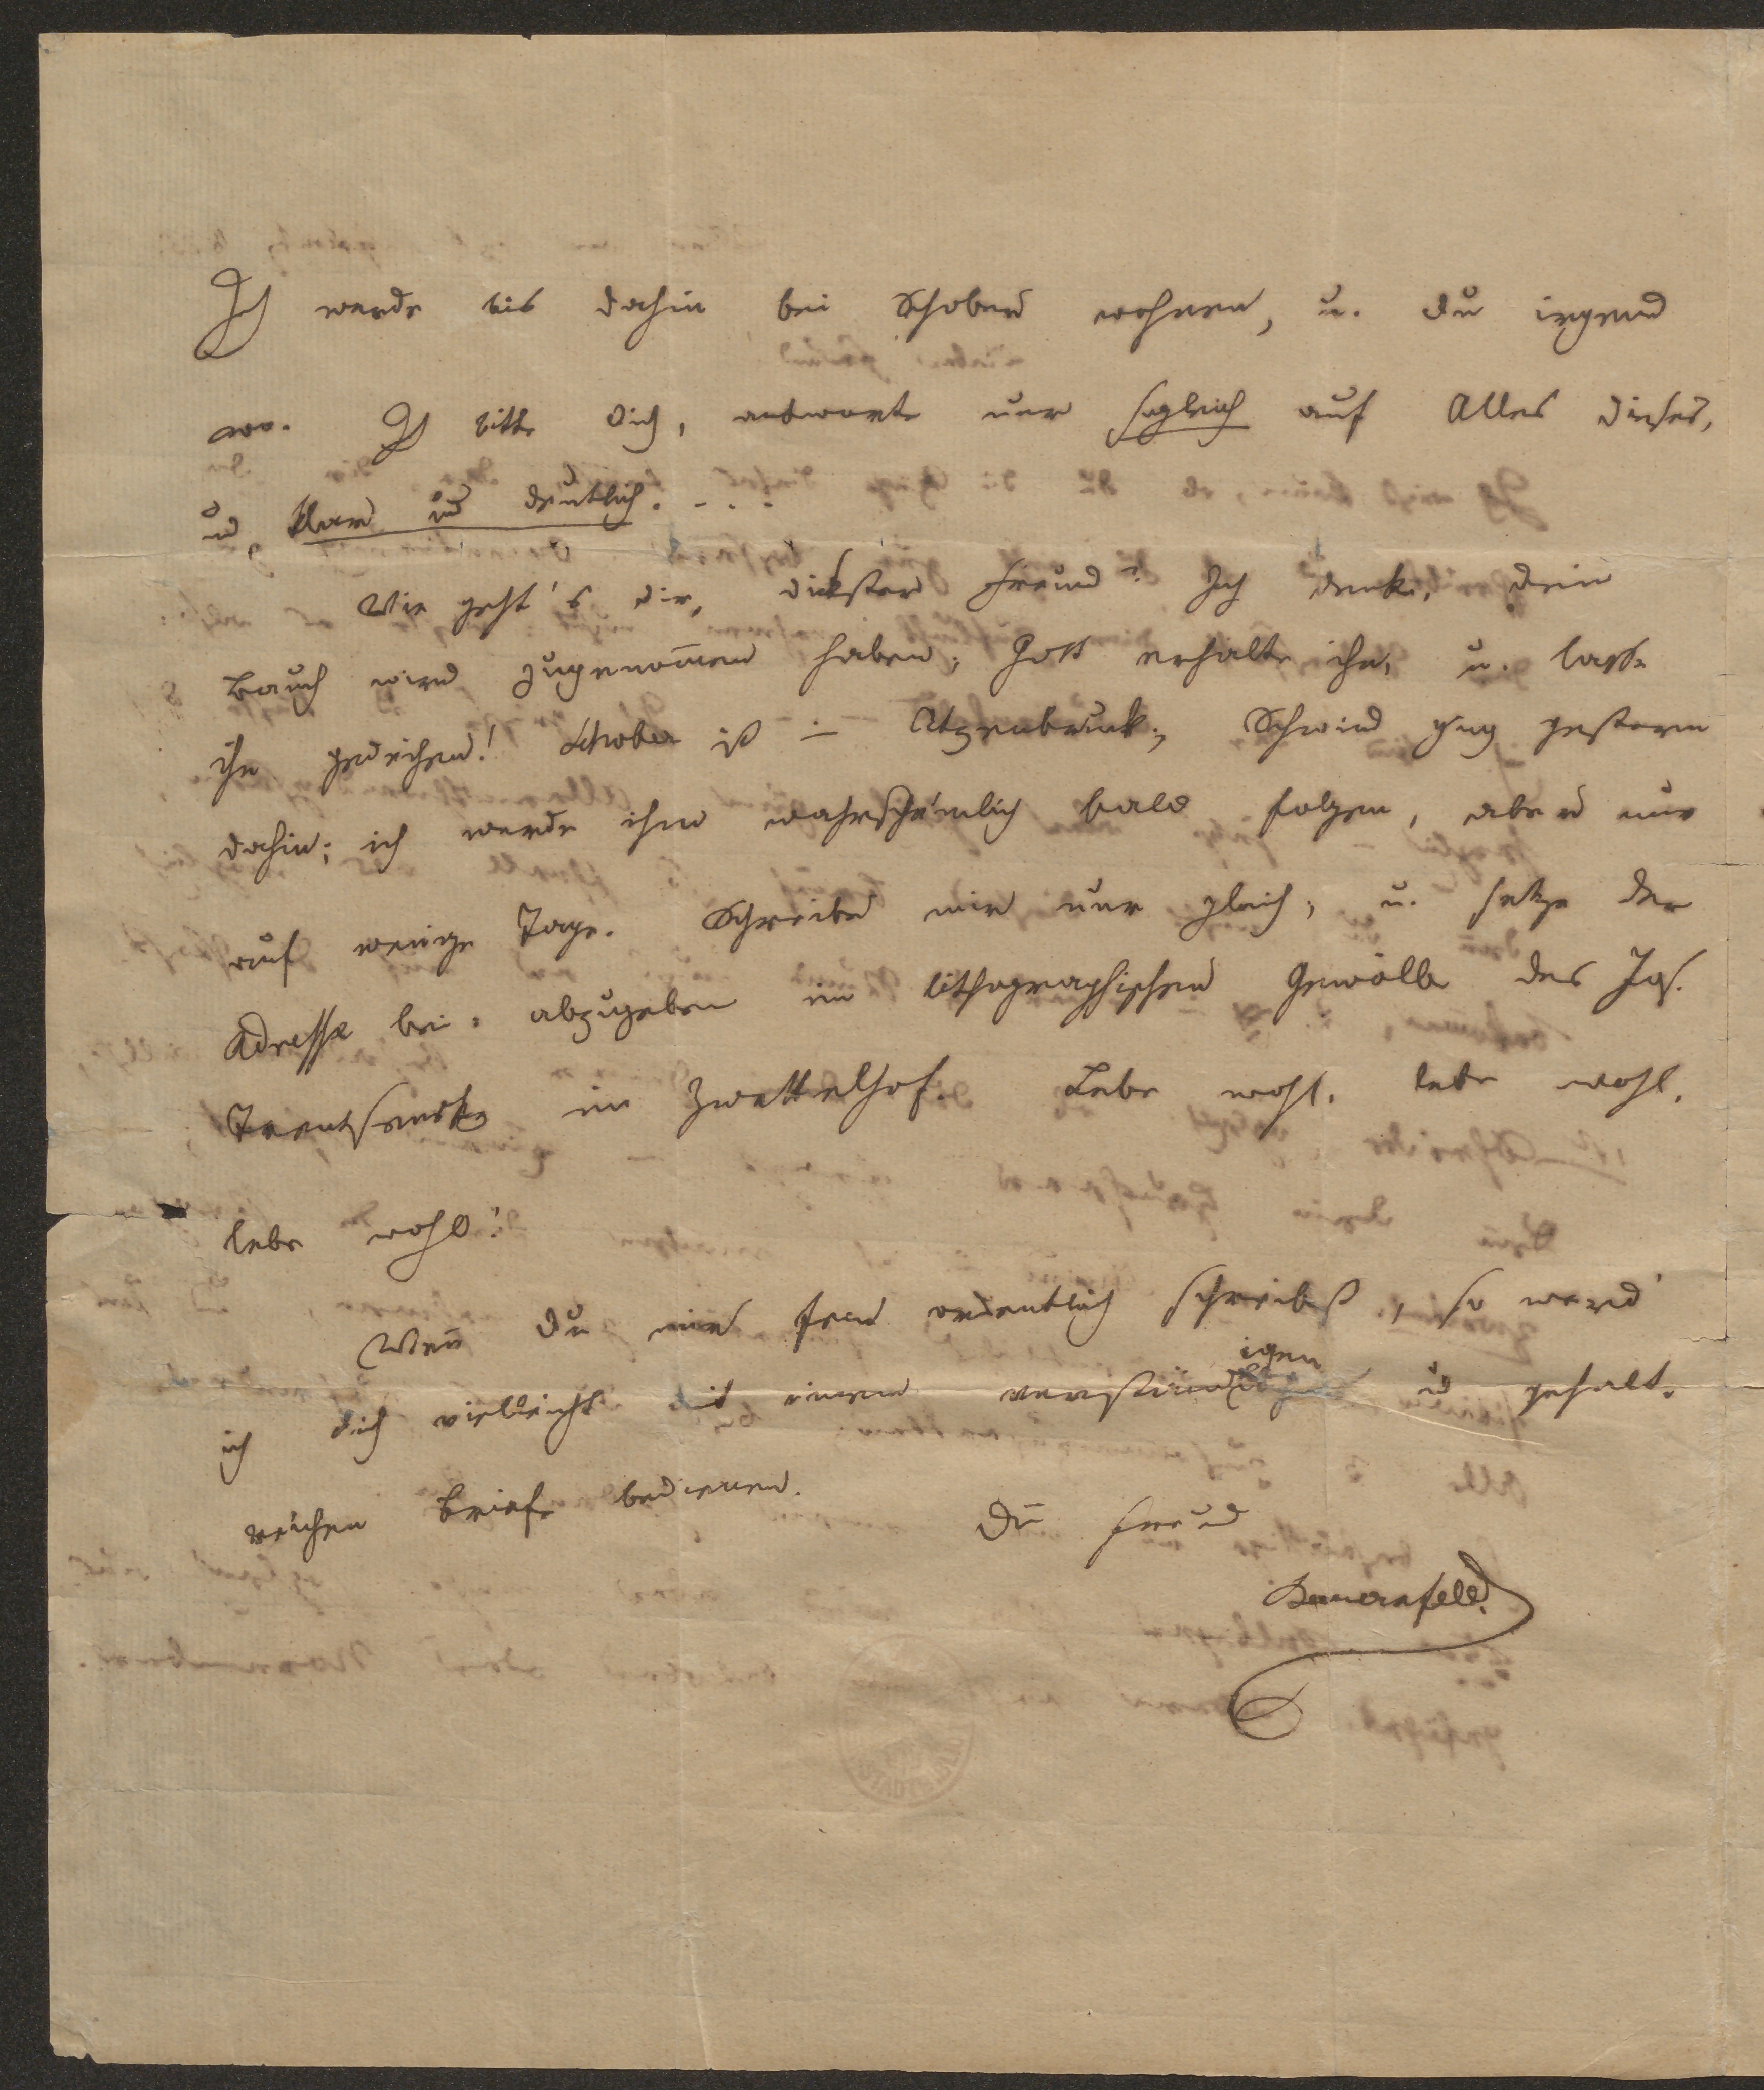 Ich werde bis dahin bei Schober wohnen, u. du irgend
wo. Ich bitte dich, antworte nur sogleich auf Alles dieses,
und klar und deutlich. - - -
Wie geht's dir, dickster Freund? Ich denke, dein
Bauch wird zugenom̅en haben; Gott erhalte ihn, u. lasse
ihn gedeihen! Schober ist in Atzenbruck; Schwind ging gestern
dahin; ich werde ihm wahrscheinlich bald folgen, aber nur
auf wenige Tage. Schreibe mir nur gleich, u. setze der
Adresse bei: abzugeben im lithographischen Gewölbe des Jos.
Trentsensky im Zwettelhof. Lebe wohl, lebe wohl,
lebe wohl!
Wen̅ du mir fein ordentlich schreibst, so werd'
ich dich vielleicht mit einem verständigen und gehalt-
reichen Briefe bedienen.
Dein Freund
Bauernfeld.